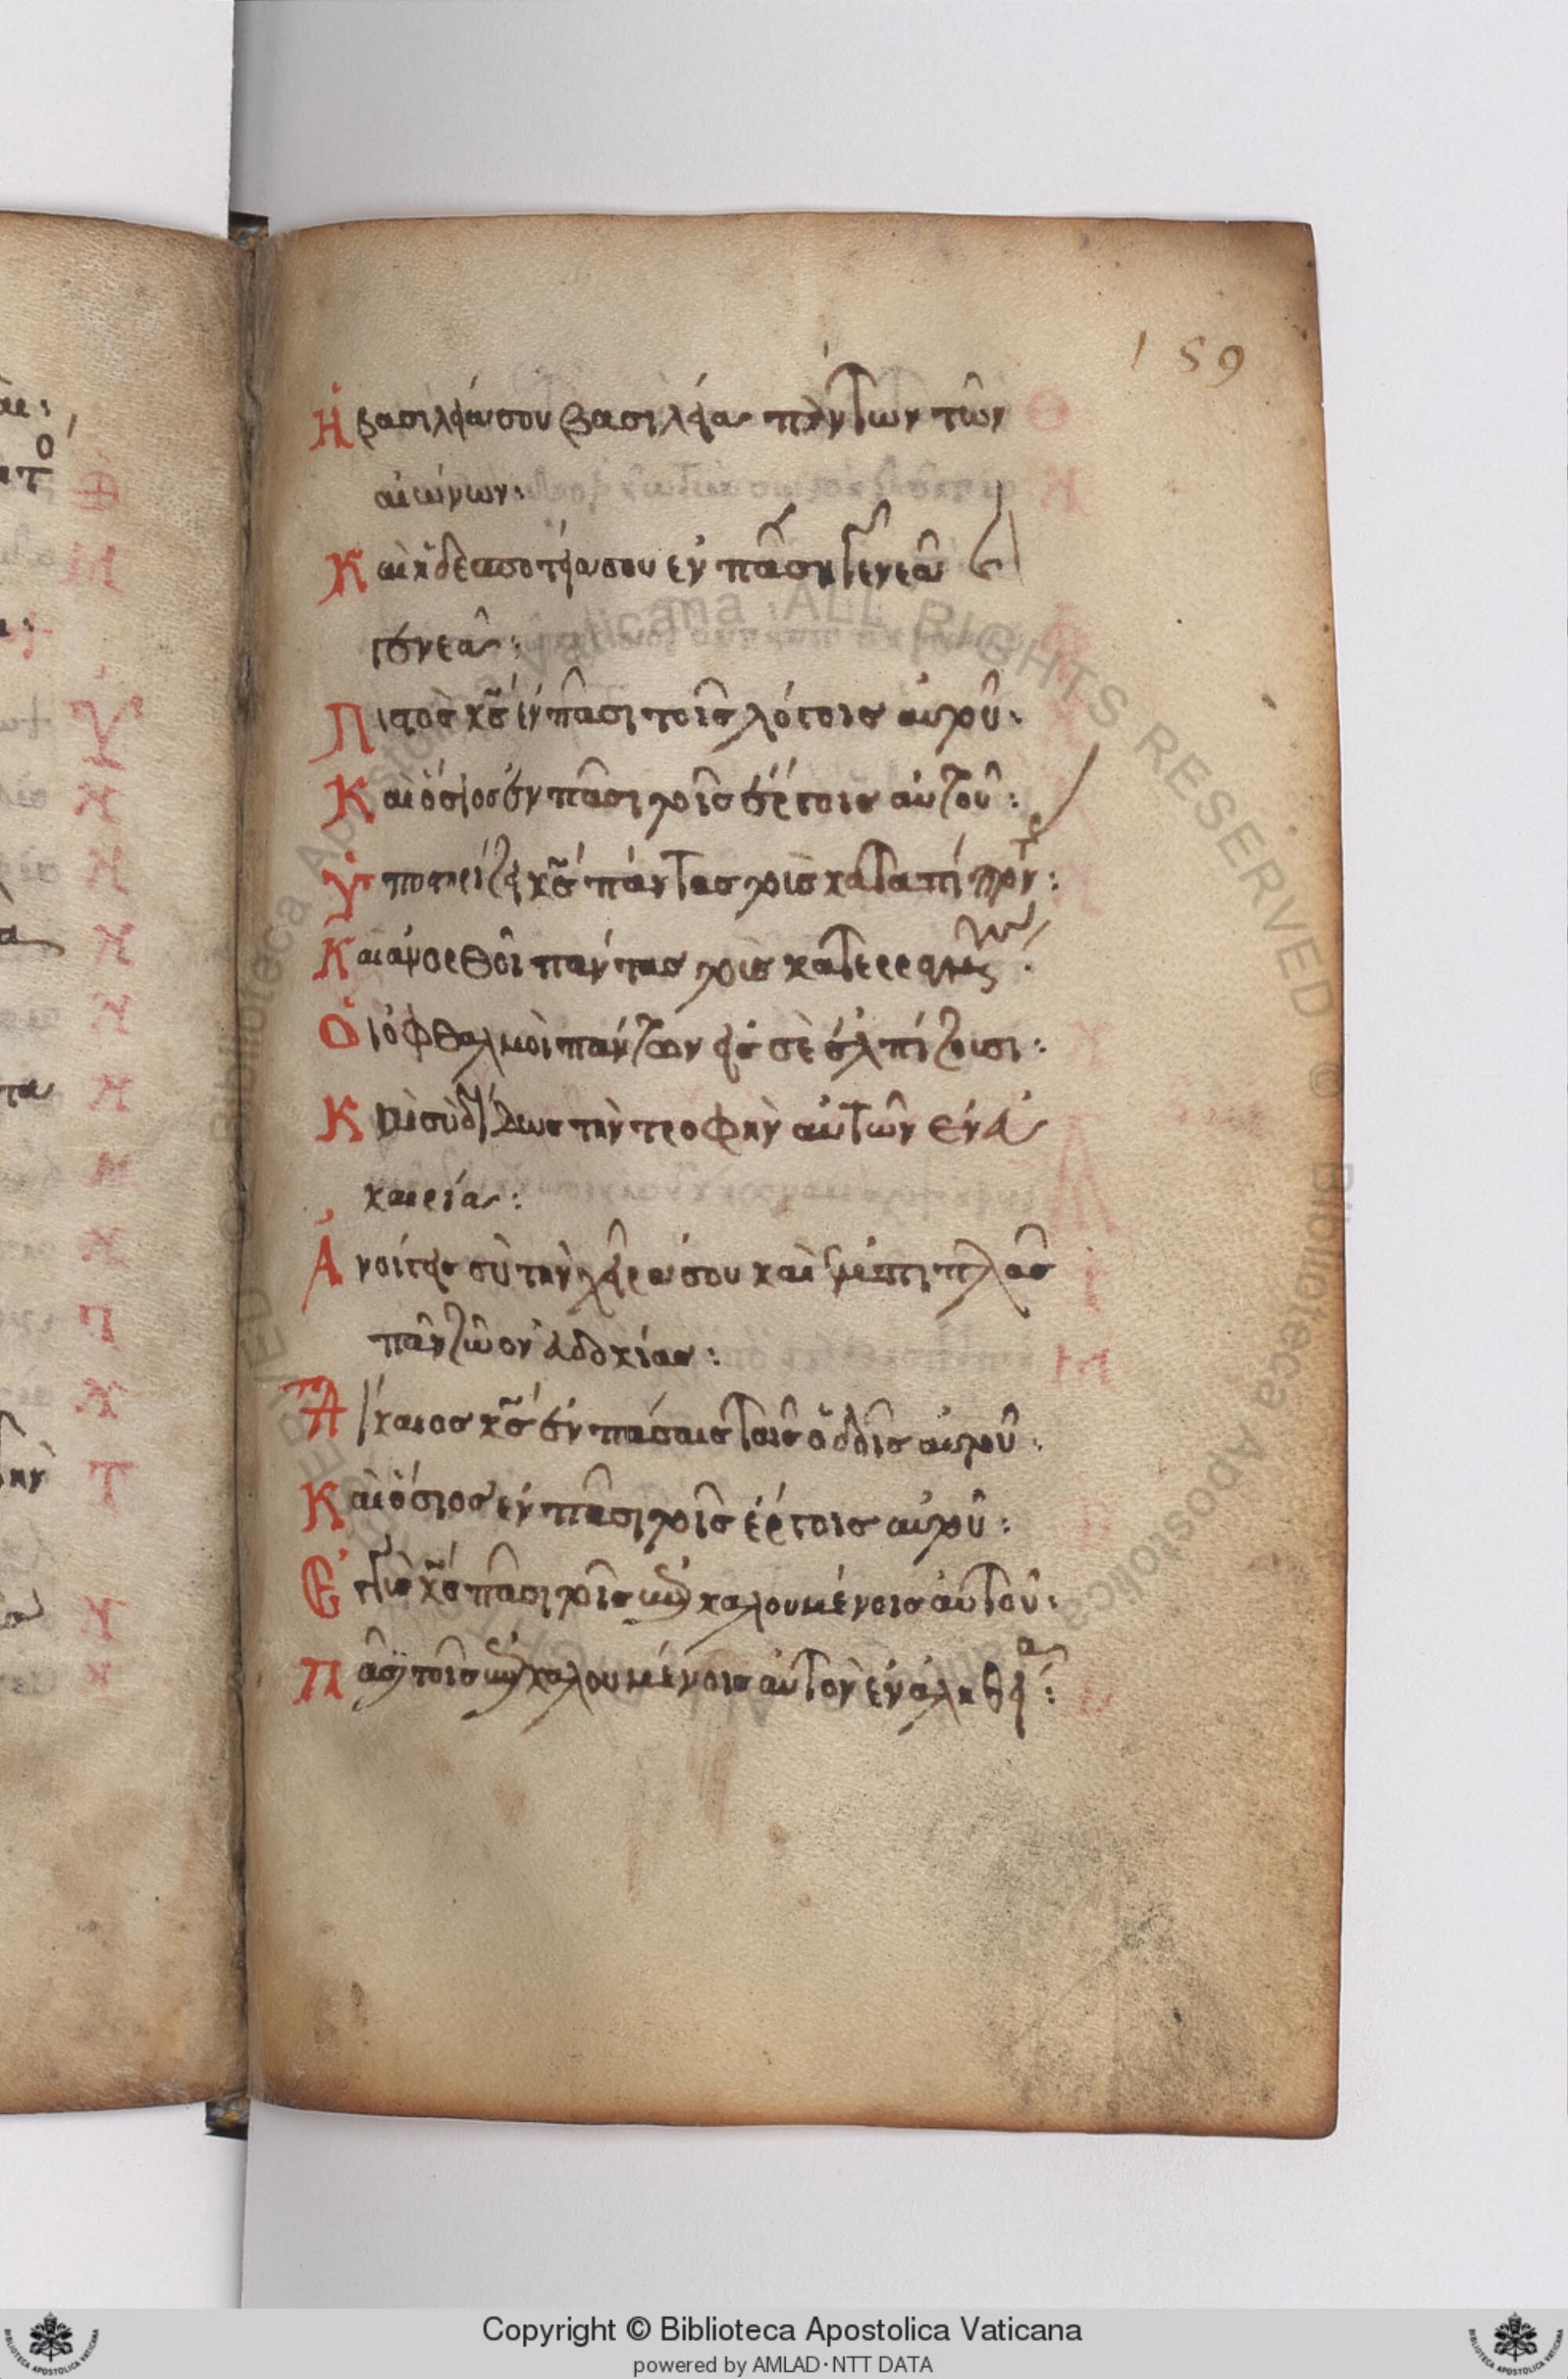 159
Ἡ βασιλεία σου βασιλεία πάντων τῶν
αἰώνων:
Καὶ ἡ δεσποτεία σου ἐν πάσῃ γενεᾷ καὶ
γενεᾷ:
Πιστὸς κ̅ς̅ ἐν πᾶσι τοῖς λόγοις αὐτοῦ:
Καὶ ὅσιος ἐν πᾶσι τοῖς ἔργοις αὐτοῦ:
Ὑποστηρίζει κ̅ς̅ πάντας τοὺς καταπίπτον:
Καὶ ἀνορθοῖ πάντας τοὺς κατερραγμένους:
Οἱ ὀφθαλμοὶ πάντων εἰς σὲ ἐλπίζουσι:
Καὶ σὺ δίδως τὴν τροφὴν αὐτῶν ἐν εὐ
καιρία:
Ἀνοίγεις σὺ τὴν χεῖρα σου καὶ ἐμπιπλᾶς
πᾶν ζῶον εὐδοκίας:
Δίκαιος κ̅ς̅ ἐν πάσαις ταῖς ὁδοῖς αὐτοῦ:
Καὶ ὅσιος ἐν πᾶσι τοῖς ἔργοις αὐτοῦ:
Ἐγγὺς κ̅ς̅ πᾶσι τοῖς ἐπικαλουμένοις αὐτοῦ:
Πᾶσι τοῖς ἐπικαλουμένοις αὐτὸν ἐν ἀληθεία:
Copyright © Biblioteca Apostolica Vaticana
powered by AMLAD·NTT DATA